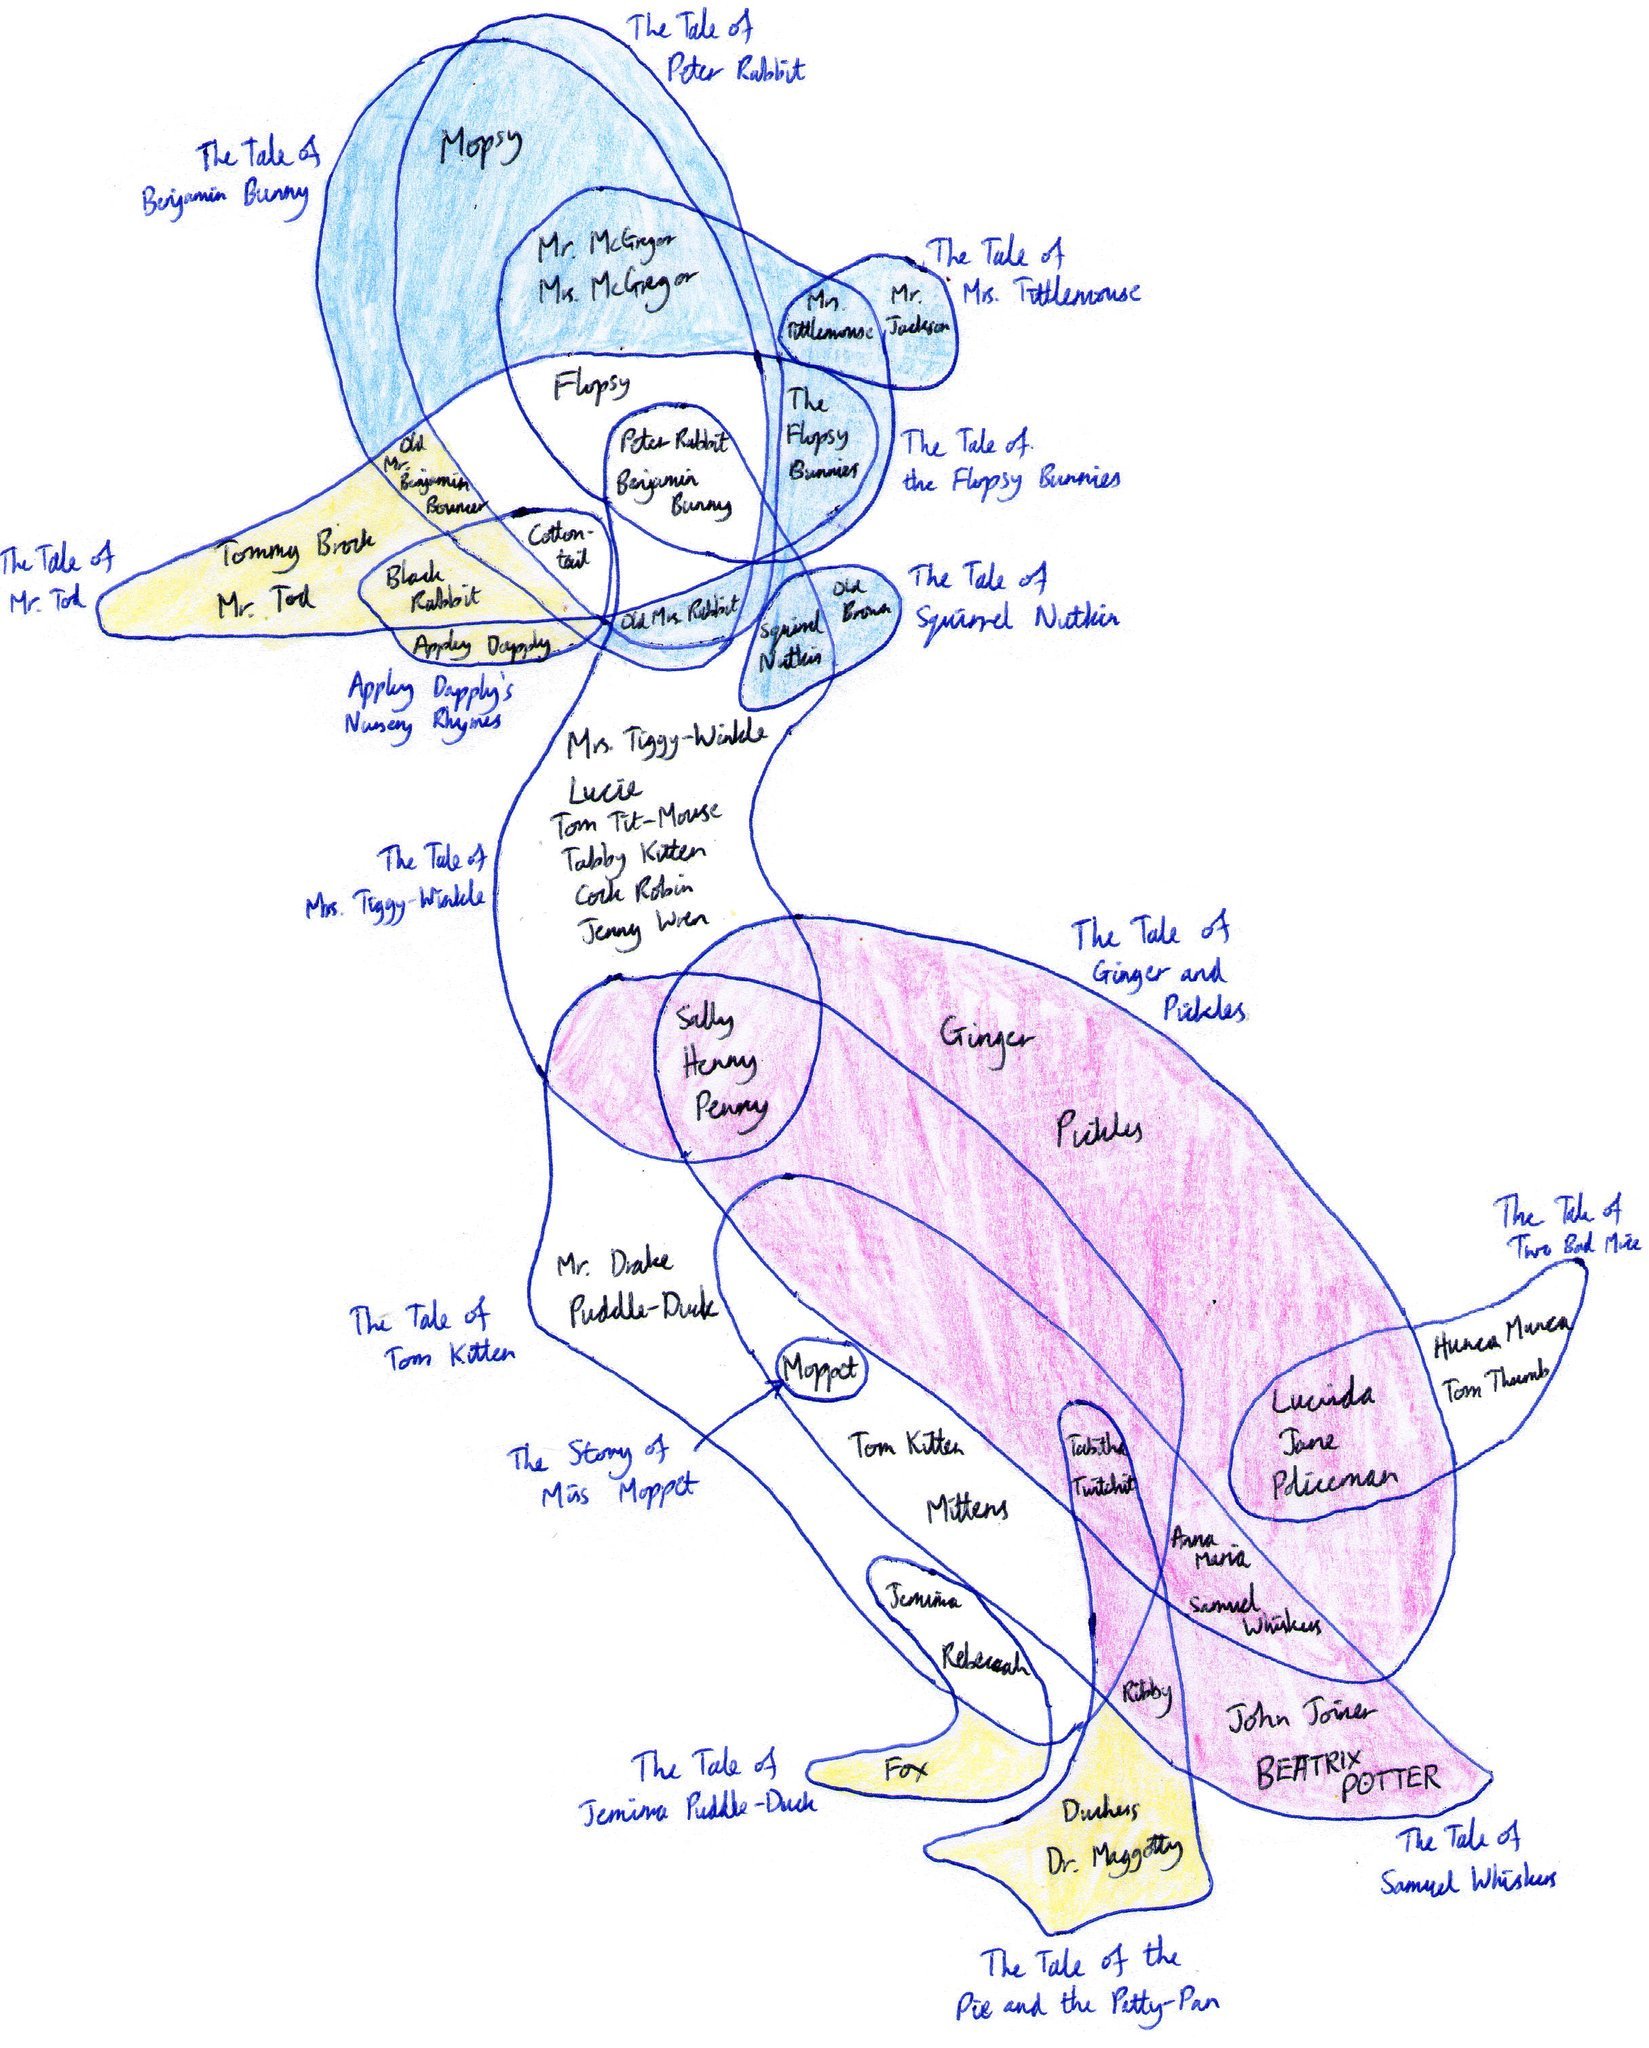 The Tale of
Peter Rabbit
The Tale of
Benjamin Bunny
Mopsy
Mr. McGregor
Mrs. McGregor
The Tale of
Mrs. Tittlemouse
Mrs.
Tittlemouse
Mr.
Jackson
Flopsy
The
Flopsy
Bunnies
Peter Rabbit
Benjamin
Bunny
The Tale of
the Flopsy Bunnies
Old
Mr.
Benjamin
Bouncer
Cotton-
tail
The Tale of
Mr. Tod
Tommy Brock
Mr. Tod
Black
Rabbit
Appley Dapply
Old Mrs. Rabbit
Squirrel
Nutkin
Old
Brown
The Tale of
Squirrel Nutkin
Appley Dapply's
Nursery Rhymes
Mrs. Tiggy-Winkle
Lucie
Tom Tit-Mouse
Tabby Kitten
Cock Robin
Jenny Wren
The Tale of
Mrs. Tiggy-Winkle
The Tale of
Ginger and
Pickles
Sally
Henny
Penny
Ginger
Pickles
The Tale of
Two Bad Mice
Hunca Munca
Tom Thumb
Lucinda
Jane
Policeman
Mr. Drake
Puddle-Duck
The Tale of
Tom Kitten
Moppet
The Story of
Miss Moppet
Tom Kitten
Mittens
Tabitha
Twitchit
Anna
Maria
Samuel
Whiskers
Jemima
Rebeccah
Ribby
John Joiner
BEATRIX
POTTER
The Tale of
Jemima Puddle-Duck
Fox
Duchess
Dr. Maggotty
The Tale of
Samuel Whiskers
The Tale of the
Pie and the Patty-Pan